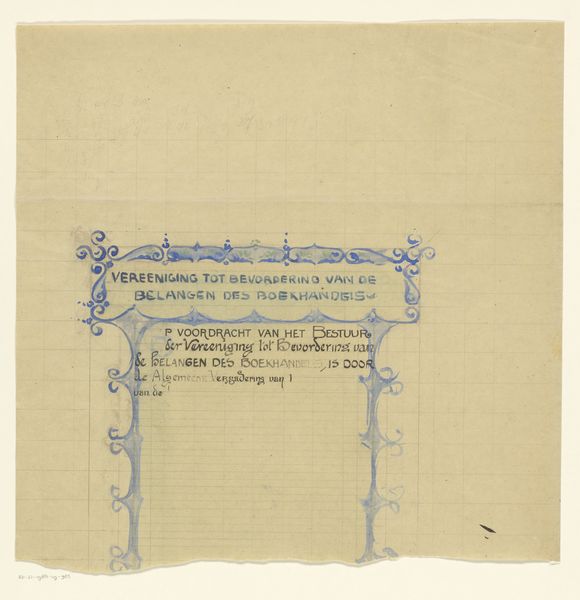 VEREENIGING TOT BEVORDERING VAN DE
BELANGEN DES BOEKHANDELS
P VOORDRACHT VAN HET BESTUUR
der Vereeniging tot Bevordering van
de BELANGEN DES BOEKHANDELS, IS DOOR
de Algemeene Vergadering van
van de